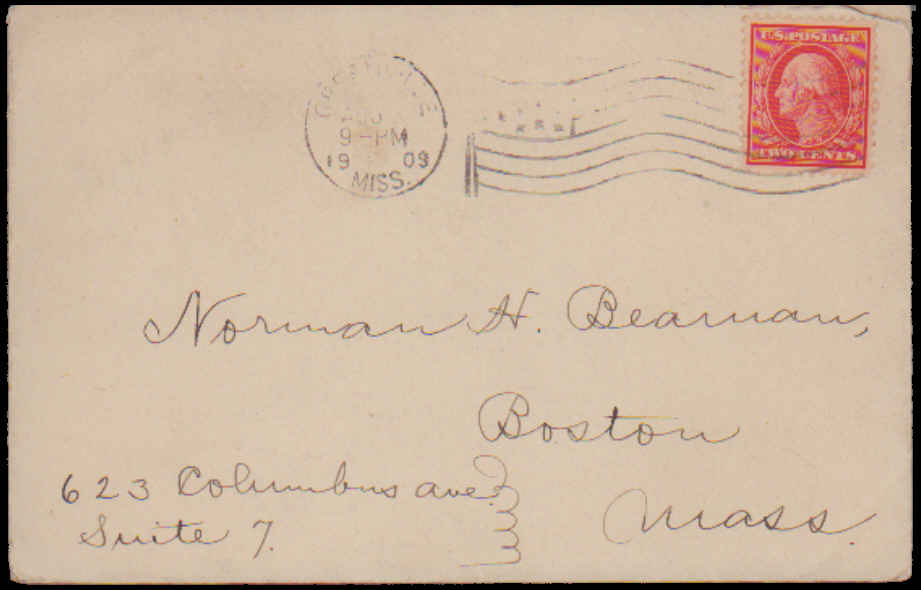 U.S. POSTAGE
TWO CENTS
9-PM
19 09
MISS.
Norman H. Beaman,
Boston
Mass.
623 Columbus ave.
Suite 7.